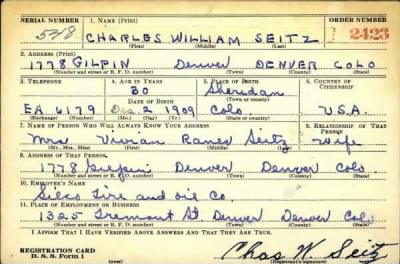 SERIAL NUMBER 1. NAME (Print) ORDER NUMBER
548 CHARLES WILLIAM SEITZ 2423
(First) (Middle) (Last)
2. ADDRESS (Print)
1778 GILPIN Denver DENVER COLO
(Number and street or R. F. D. number) (Town) (County) (State)
3. TELEPHONE 4. AGE IN YEARS 5. PLACE OF BIRTH 6. COUNTRY OF CITIZENSHIP
30 Sheridan
DATE OF BIRTH (Town or county)
EA 6179 Dec. 2 1909 Colo. U.S.A.
(Exchange) (Number) (Mo.) (Day) (Yr.) (State or country)
7. NAME OF PERSON WHO WILL ALWAYS KNOW YOUR ADDRESS 8. RELATIONSHIP OF THAT PERSON
Mrs Vivian Seitz Wife
(Mr., Mrs., Miss) (First) (Middle) (Last)
9. ADDRESS OF THAT PERSON
1778 Gilpin Denver Denver Colo
(Number and street or R. F. D. number) (Town) (County) (State)
10. EMPLOYER'S NAME
Tire and oil Co.
11. PLACE OF EMPLOYMENT OR BUSINESS
1325 Tremont St Denver Denver Colo
(Number and street or R. F. D. number) (Town) (County) (State)
I AFFIRM THAT I HAVE VERIFIED ABOVE ANSWERS AND THAT THEY ARE TRUE.
REGISTRATION CARD
D. S. S. Form 1 (over) Chas W. Seitz
(Registrant's signature)